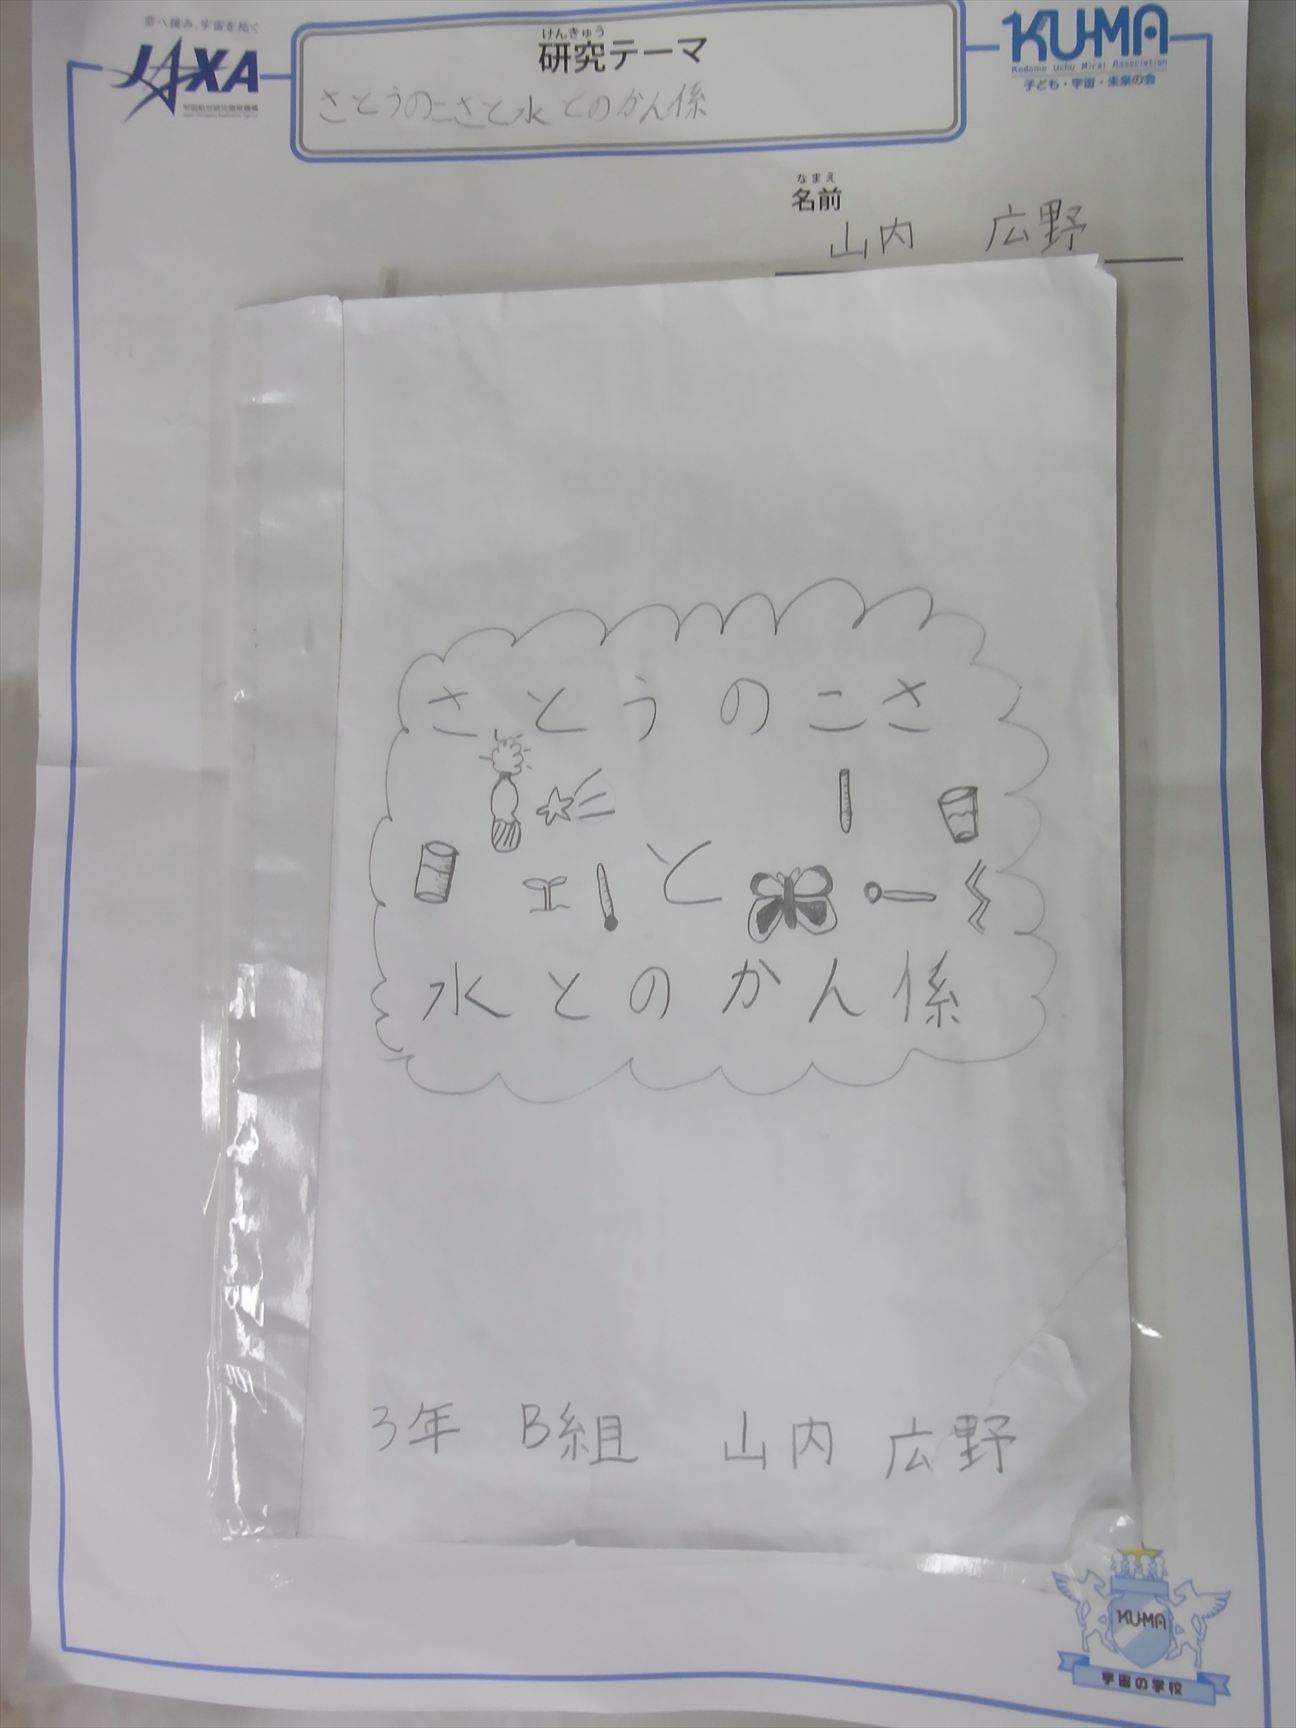 恋へ挑み、宇宙を拓く
JAXA
宇宙航空研究開発機構
けんきゅう
研究テーマ
さとうのこさと水とのかん係
KU-MA
Kodomo Uchu Mirai Association
子ども・宇宙・未来の会
なまえ
名前
山内 広野
さとうのこさ
と
水とのかん係
3年 B組 山内 広野
KU-MA
宇宙の学校